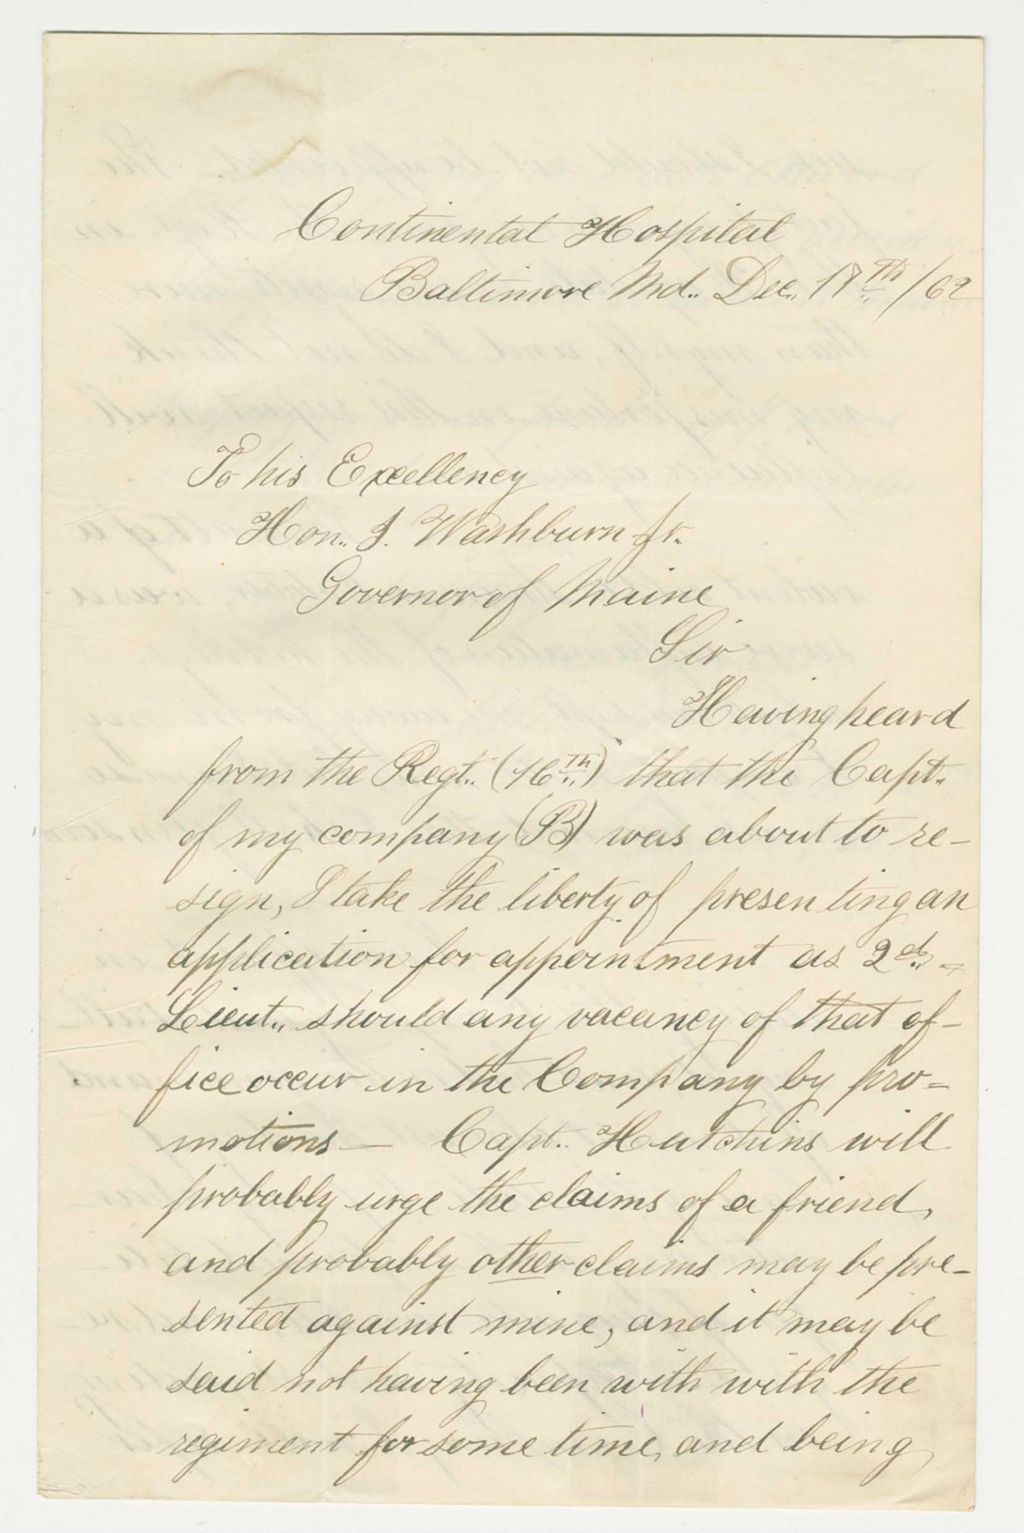 Continental Hospital
Baltimore Md.. Dec.. 17th /62
To his Excellency
Hon.. I. Washburn Jr.
Governor of Maine
Sir
Having heard
from the Regt.. (16th) that the Capt.
of my company (B) was about to re-
sign, I take the liberty of presenting an
application for appointment as 2d.. -
Lieut.. should any vacancy of that of-
fice occur in the Company by pro-
motions — Capt.. Hutchins will
probably urge the claims of a friend,
and probably other claims may be pre-
sented against mine, and it may be
said not having been with with the
regiment for some time, and being